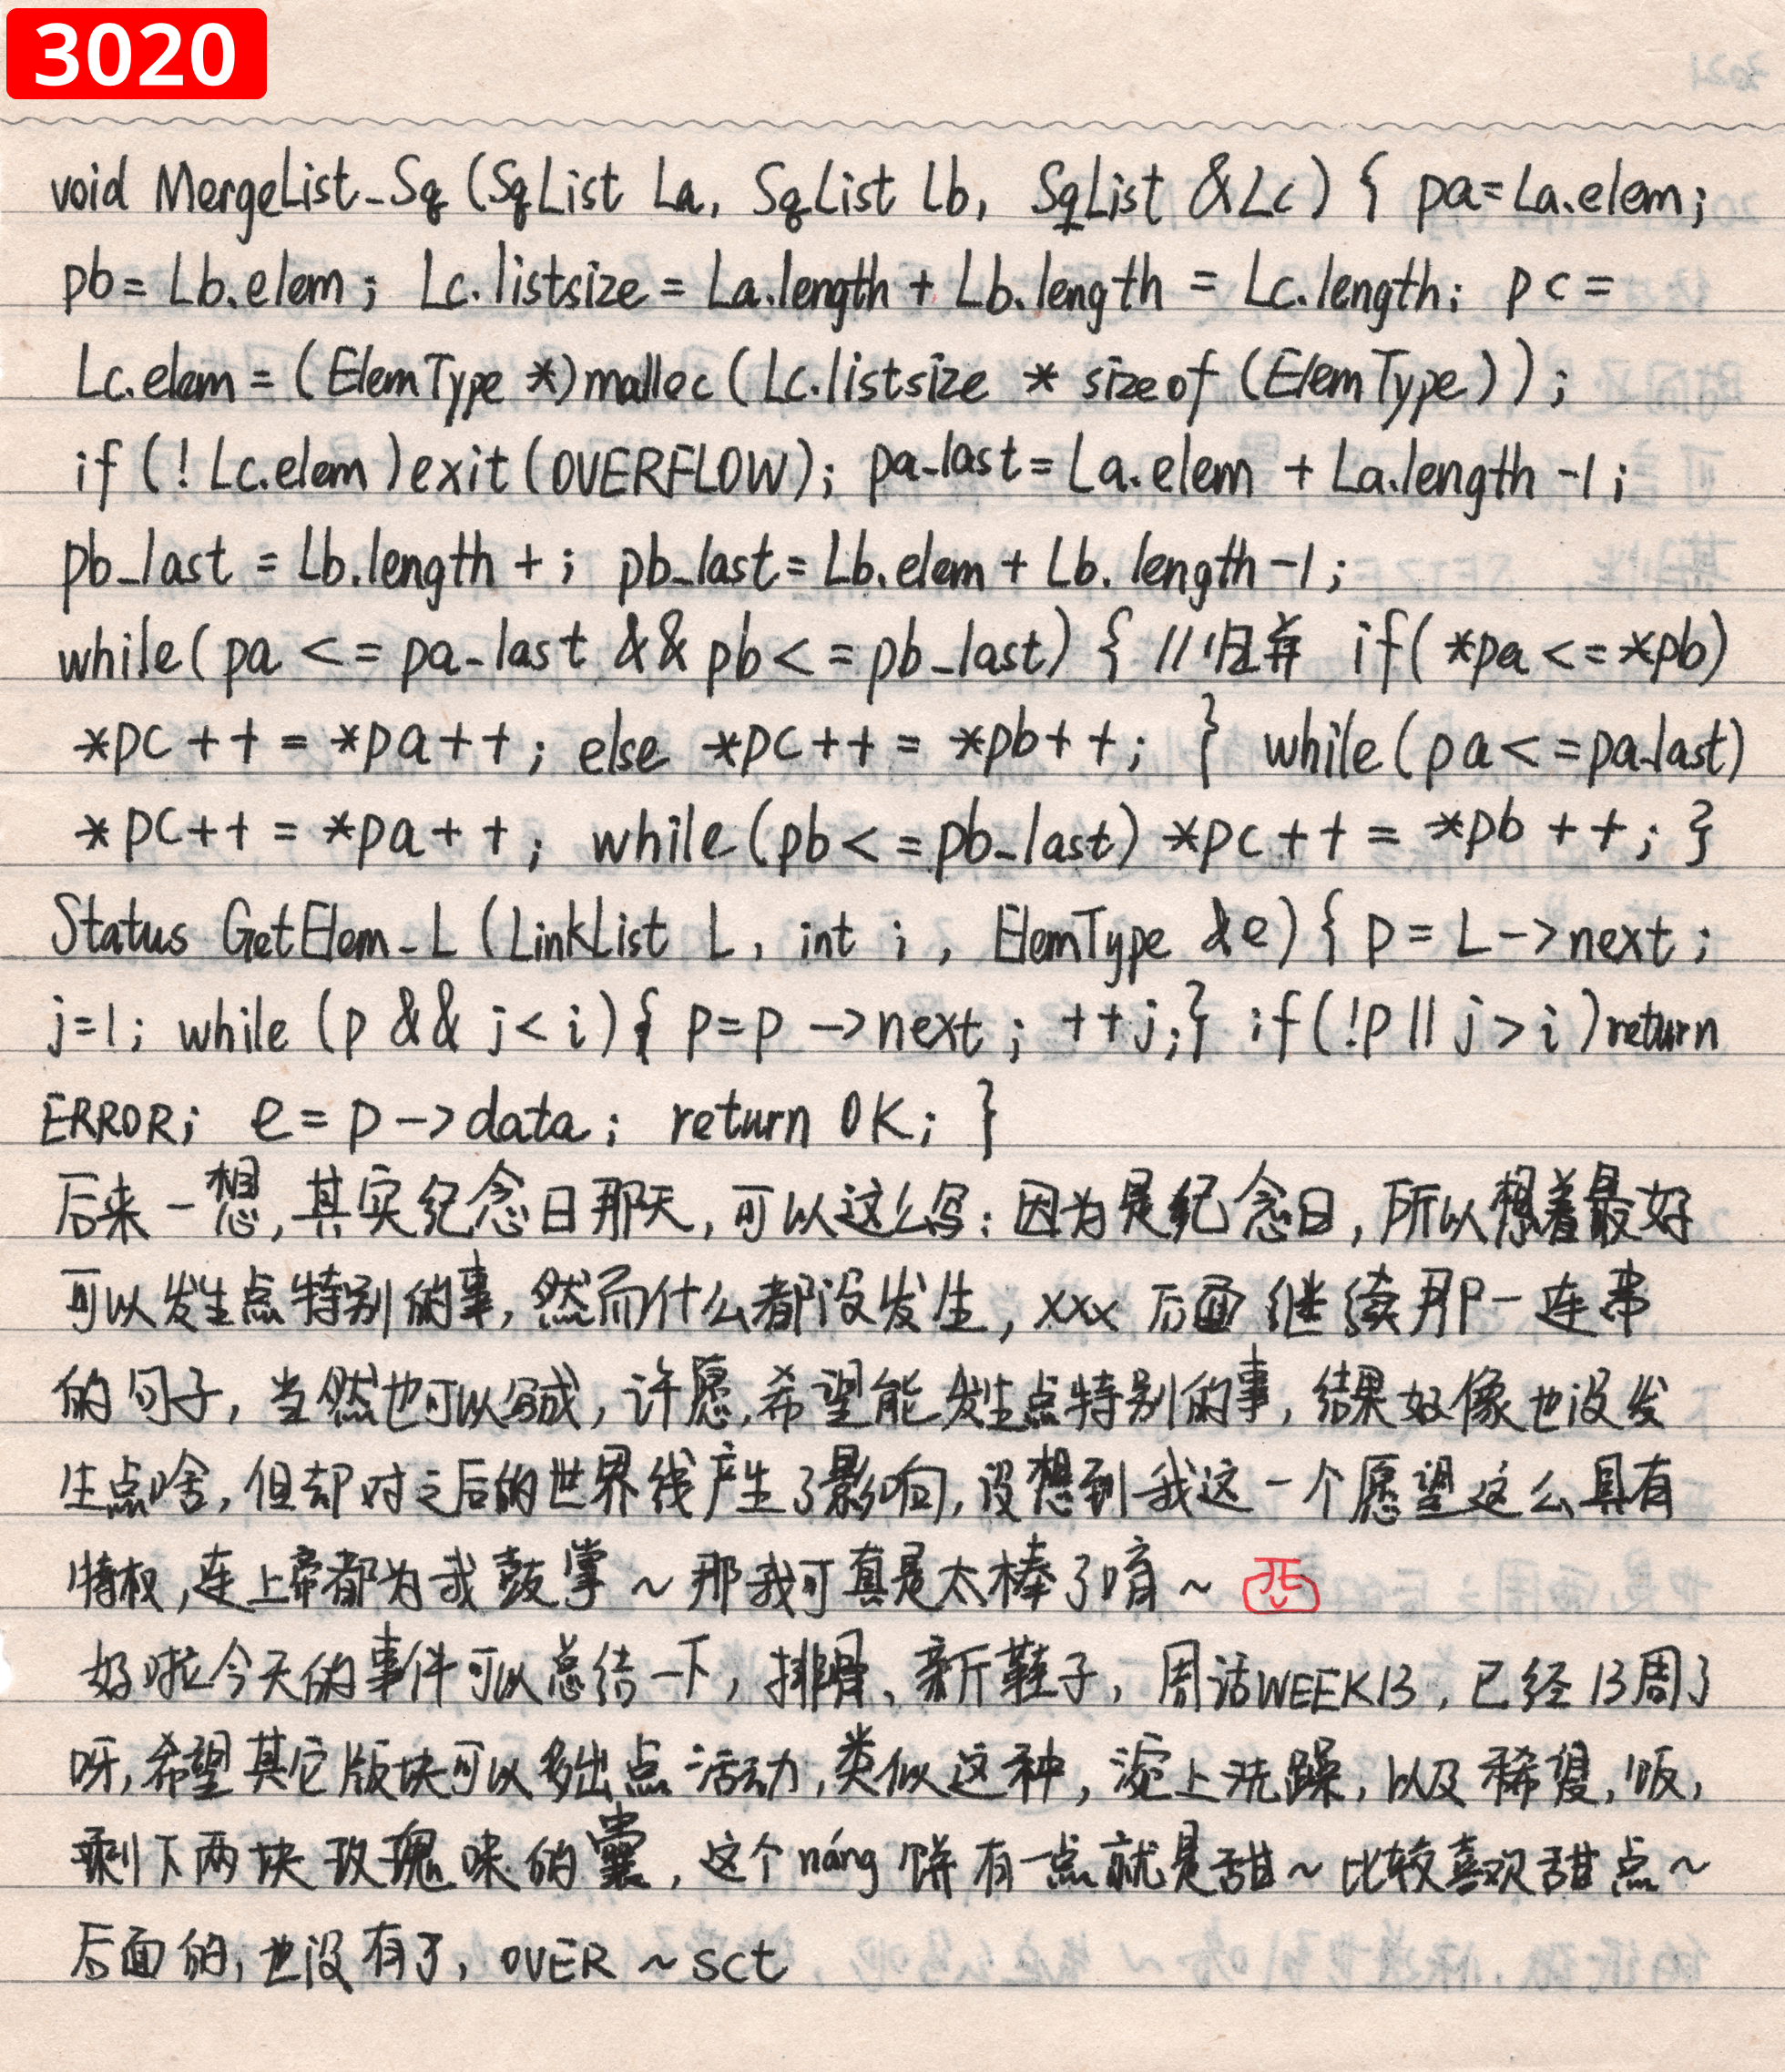 3020
void MergeList_Sq (SqList La, SqList Lb, SqList &Lc) { pa=La.elem;
pb= Lb.elem; Lc.listsize = La.length + Lb.length = Lc.length; pc =
Lc.elem = (ElemType *)malloc (Lc.listsize * sizeof (ElemType));
if (! Lc.elem) exit (OVERFLOW); pa_last = La.elem + La.length -1;
pb_last = Lb.length + ; pb_last= Lb.elem + Lb.length -1;
while( pa <= pa_last && pb <= pb_last) { //归并 if( *pa <= *pb)
*pc++ = *pa++; else *pc++ = *pb++; } while (pa <= pa_last)
*pc++ = *pa++; while (pb <= pb_last) *pc++ = *pb++; }
Status GetElem_L (LinkList L, int i, ElemType &e) { p = L->next;
j=1; while (p && j < i) { p=p ->next; ++j;} if (!p || j > i) return
ERROR; e = p -> data; return OK; }
后来一想,其实纪念日那天,可以这么写:因为是纪念日,所以想着最好
可以发生点特别的事,然而什么都没发生,xxx 后面继续那一连串
的句子,当然也可以写成,许愿,希望能发生点特别的事,结果好像也没发
生点啥,但却对之后的世界线产生了影响,没想到我这一个愿望这么具有
特权,连上帝都为我鼓掌~那我可真是太棒了唷~
好啦今天的事件可以总结一下,排骨、新鞋子,周话WEEK13,已经13周了
呀,希望其它版块可以多出点活动,类似这种,浣上洗躁,以及稀馊,饭,
剩下两块玫瑰味的囊,这个náng饼有一点就是甜~比较喜欢甜点~
后面的,也没有了,OVER ~ sct